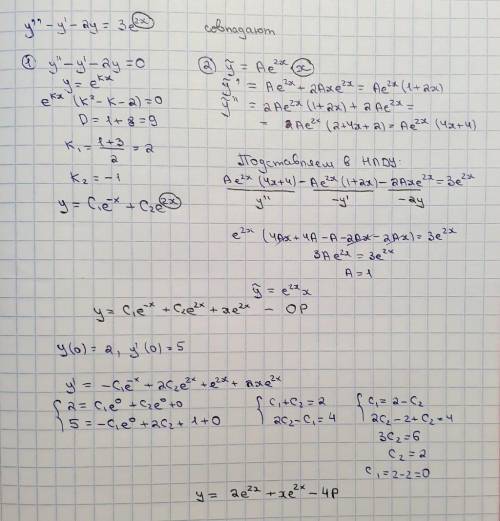 y'' - y' - 2y = 3e^{2x} совпадают
① y'' - y' - 2y = 0
y = e^{kx}
e^{kx} (k² - k - 2) = 0
D = 1 + 8 = 9
k₁ = \frac{1+3}{2} = 2
k₂ = -1
y = C₁e^{-x} + C₂e^{2x}
② ỹ = Ae^{2x} x
ỹ' = Ae^{2x} + 2Axe^{2x} = Ae^{2x} (1+2x)
ỹ'' = 2Ae^{2x} (1+2x) + 2Ae^{2x} =
= 2Ae^{2x} (2+4x+2) = Ae^{2x} (4x+4)
Подставляем в НЛДУ:
Ae^{2x} (4x+4) - Ae^{2x} (1+2x) - 2Axe^{2x} = 3e^{2x}
y'' -y' -2y
e^{2x} (4Ax + 4A - A - 2Ax - 2Ax) = 3e^{2x}
3Ae^{2x} = 3e^{2x}
A = 1
ỹ = e^{2x} x
y = C₁e^{-x} + C₂e^{2x} + xe^{2x} - ОР
y(0) = 2, y'(0) = 5
y' = -C₁e^{-x} + 2C₂e^{2x} + e^{2x} + 2xe^{2x}
{ 2 = C₁e⁰ + C₂e⁰ + 0
5 = -C₁e⁰ + 2C₂ + 1 + 0
{ C₁ + C₂ = 2
2C₂ - C₁ = 4
{ C₁ = 2 - C₂
2C₂ - 2 + C₂ = 4
3C₂ = 6
C₂ = 2
C₁ = 2 - 2 = 0
y = 2e^{2x} + xe^{2x} - ЧР